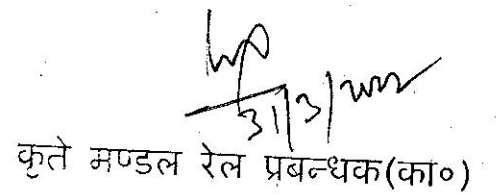 31/3/
कृते मण्डल रेल प्रबन्धक(का०)